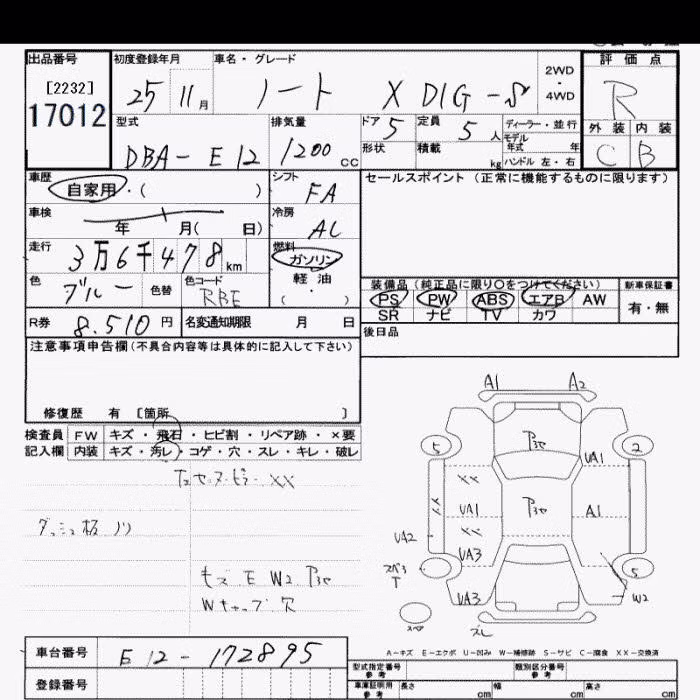 出品番号 初度登録年月 車名・グレード 評価点
[2232]
17012
25 11月 ノート X DIG-S 2WD・4WD R
型式 排気量 ドア 定員 ディーラー・並行 外装 内装
DBA-E12 1200cc 5 5人 モデル年式 年 C B
形状 積載 kg ハンドル 左・右
車歴 シフト セールスポイント(正常に機能するものに限ります)
自家用・( ) FA
車検 冷房
年 月( 日) AC
走行 燃料
3万6千478km ガソリン
色 色替 色コード 軽油
ブルー RBE ・( )
装備品(純正品に限り○をつけてください) 新車保証書
PS PW ABS エアB AW 有・無
SR ナビ TV カワ
R券 8.510円 名変通知期限 月 日 後日品
注意事項申告欄(不具合内容等は具体的に記入して下さい)
修復歴 有 [箇所 ]
検査員 FW キズ・飛石・ヒビ割・リペア跡・×要
記入欄 内装 キズ・汚レ・コゲ・穴・スレ・キレ・破レ
XX
キズ E W2 P3e
Wキャップ穴
A1 A2
5 P3e 2
UA1
XX XX
UA1 P3e A1
XX
UA2 UA3
スペ5 T 5
UA3 W2
スペア ズレ
A-キズ E-エクボ U-凹み W-補修跡 S-サビ C-腐食 XX-交換済
車台番号 E12-172895
登録番号
型式指定番号 参考 類別区分番号 参考
車庫証明用 参考 長さ cm 幅 cm 高さ cm